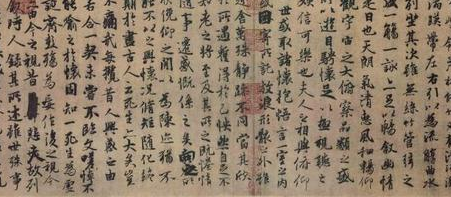 映帶左右引以為流觴曲水
列坐其次雖無絲竹管弦之
一觴一詠亦足以暢敘幽情
是日也天朗氣清惠風和暢仰
觀宇宙之大俯察品類之盛
以遊目騁懷足以極視聽之
信可樂也夫人之相與俯仰
世或取諸懷抱悟言一室之內
或因寄所託放浪形骸之外雖
趣舍萬殊靜躁不同當其欣
所遇蹔得於己怏然自足不
知老之將至及其所之既惓情
隨事遷感慨係之矣向之所
欣俛仰之間以為陳迹猶不
能不以之興懷況脩短隨化終
期於盡古人云死生亦大矣豈
不痛哉每攬昔人興感之由
若合一契未嘗不臨文嗟悼不
能喻之於懷固知一死生為虛
誕齊彭殤為妄作後之視今
由今之視昔悲夫故列
敘時人錄其所述雖世殊事